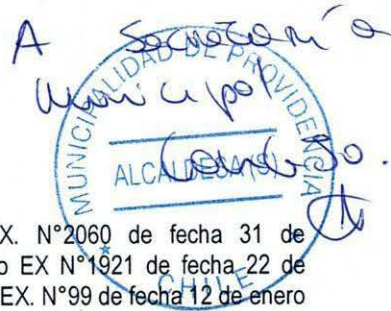 A Secretaría
Municipal
MUNICIPALIDAD DE PROVIDENCIA
ALCALDESA (S)
CHILE
X. N°2060 de fecha 31 de
o EX N°1921 de fecha 22 de
EX. N°99 de fecha 12 de enero